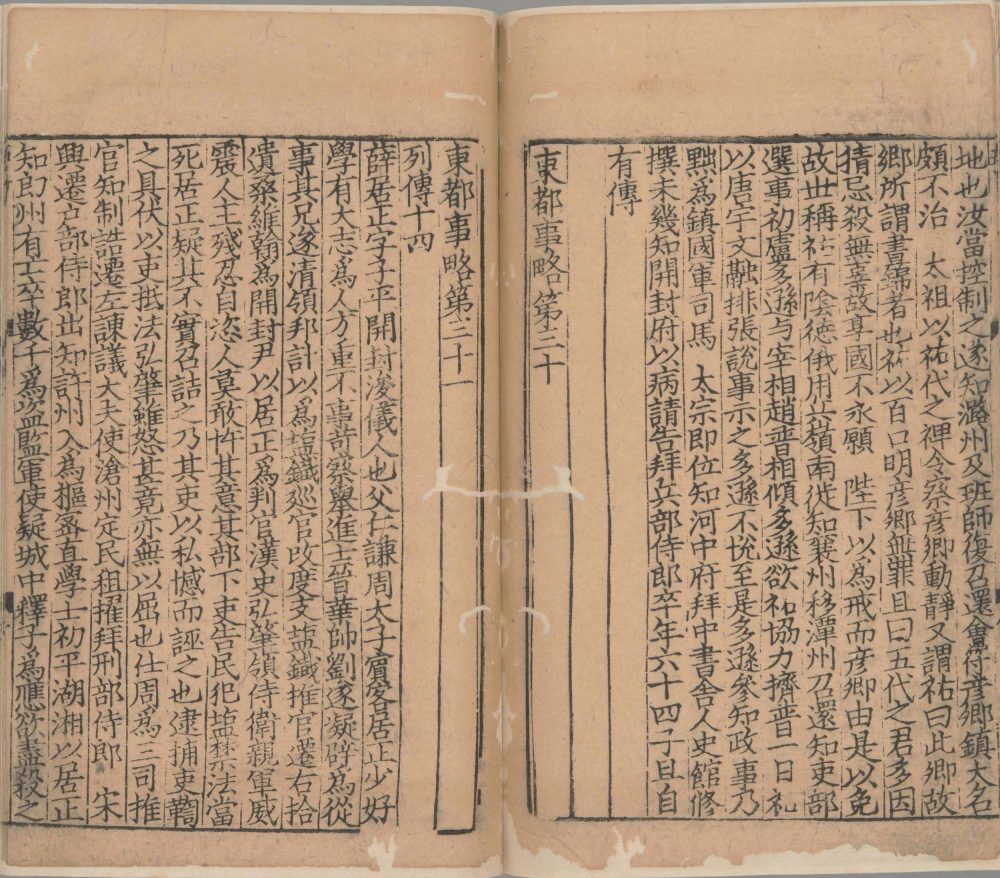 地也汝當控制之遂知潞州及班師復乃還會符彦卿鎮大名
頗不治 太祖以祐代之俾令察彦卿動靜又謂祐曰此卿故
鄉所謂晝錦者也祐以百口明彦卿無罪且曰五代之君多因
猜忌殺無辜故享國不永願 陛下以為戒而彦卿由是以免
故世稱祐有陰德俄用兵嶺南徙知襄州移潭州召還知吏部
選事初盧多遜与宰相趙普相傾多遜欲祐協力擠普一日祐
以唐宇文融排張說事示之多遜不悅至是多遜參知政事乃
黜為鎮國軍司馬 太宗即位知河中府拜中書舍人史館修
撰未幾知開封府以病請告拜兵部侍郎卒年六十四子旦自
有傳
東都事略第三十
東都事略第三十一
列傳十四
薛居正字子平開封浚儀人也父仁謙周太子賓客居正少好
學有大志為人方重不事苛察舉進士晉華帥劉遂凝辟為從
事其兄遂清領邦計以為塩鐵廵官改度支塩鐵推官遷右拾
遺桑維翰為開封尹以居正為判官漢史弘肇領侍衛親軍威
震人主殘忍自恣人莫敢忤其意其部下吏告民犯塩禁法當
死居正疑其不實召詰之乃其吏以私憾而誣之也逮捕吏鞫
之具伏以吏抵法弘肇雖怒甚竟亦無以屈也仕周為三司推
官知制誥遷左諫議大夫使滄州定民租擢拜刑部侍郎 宋
興遷户部侍郎出知許州入為樞密直學士初平湖湘以居正
知朗州有亡卒數千為盜監軍使疑城中釋子為應欲盡殺之